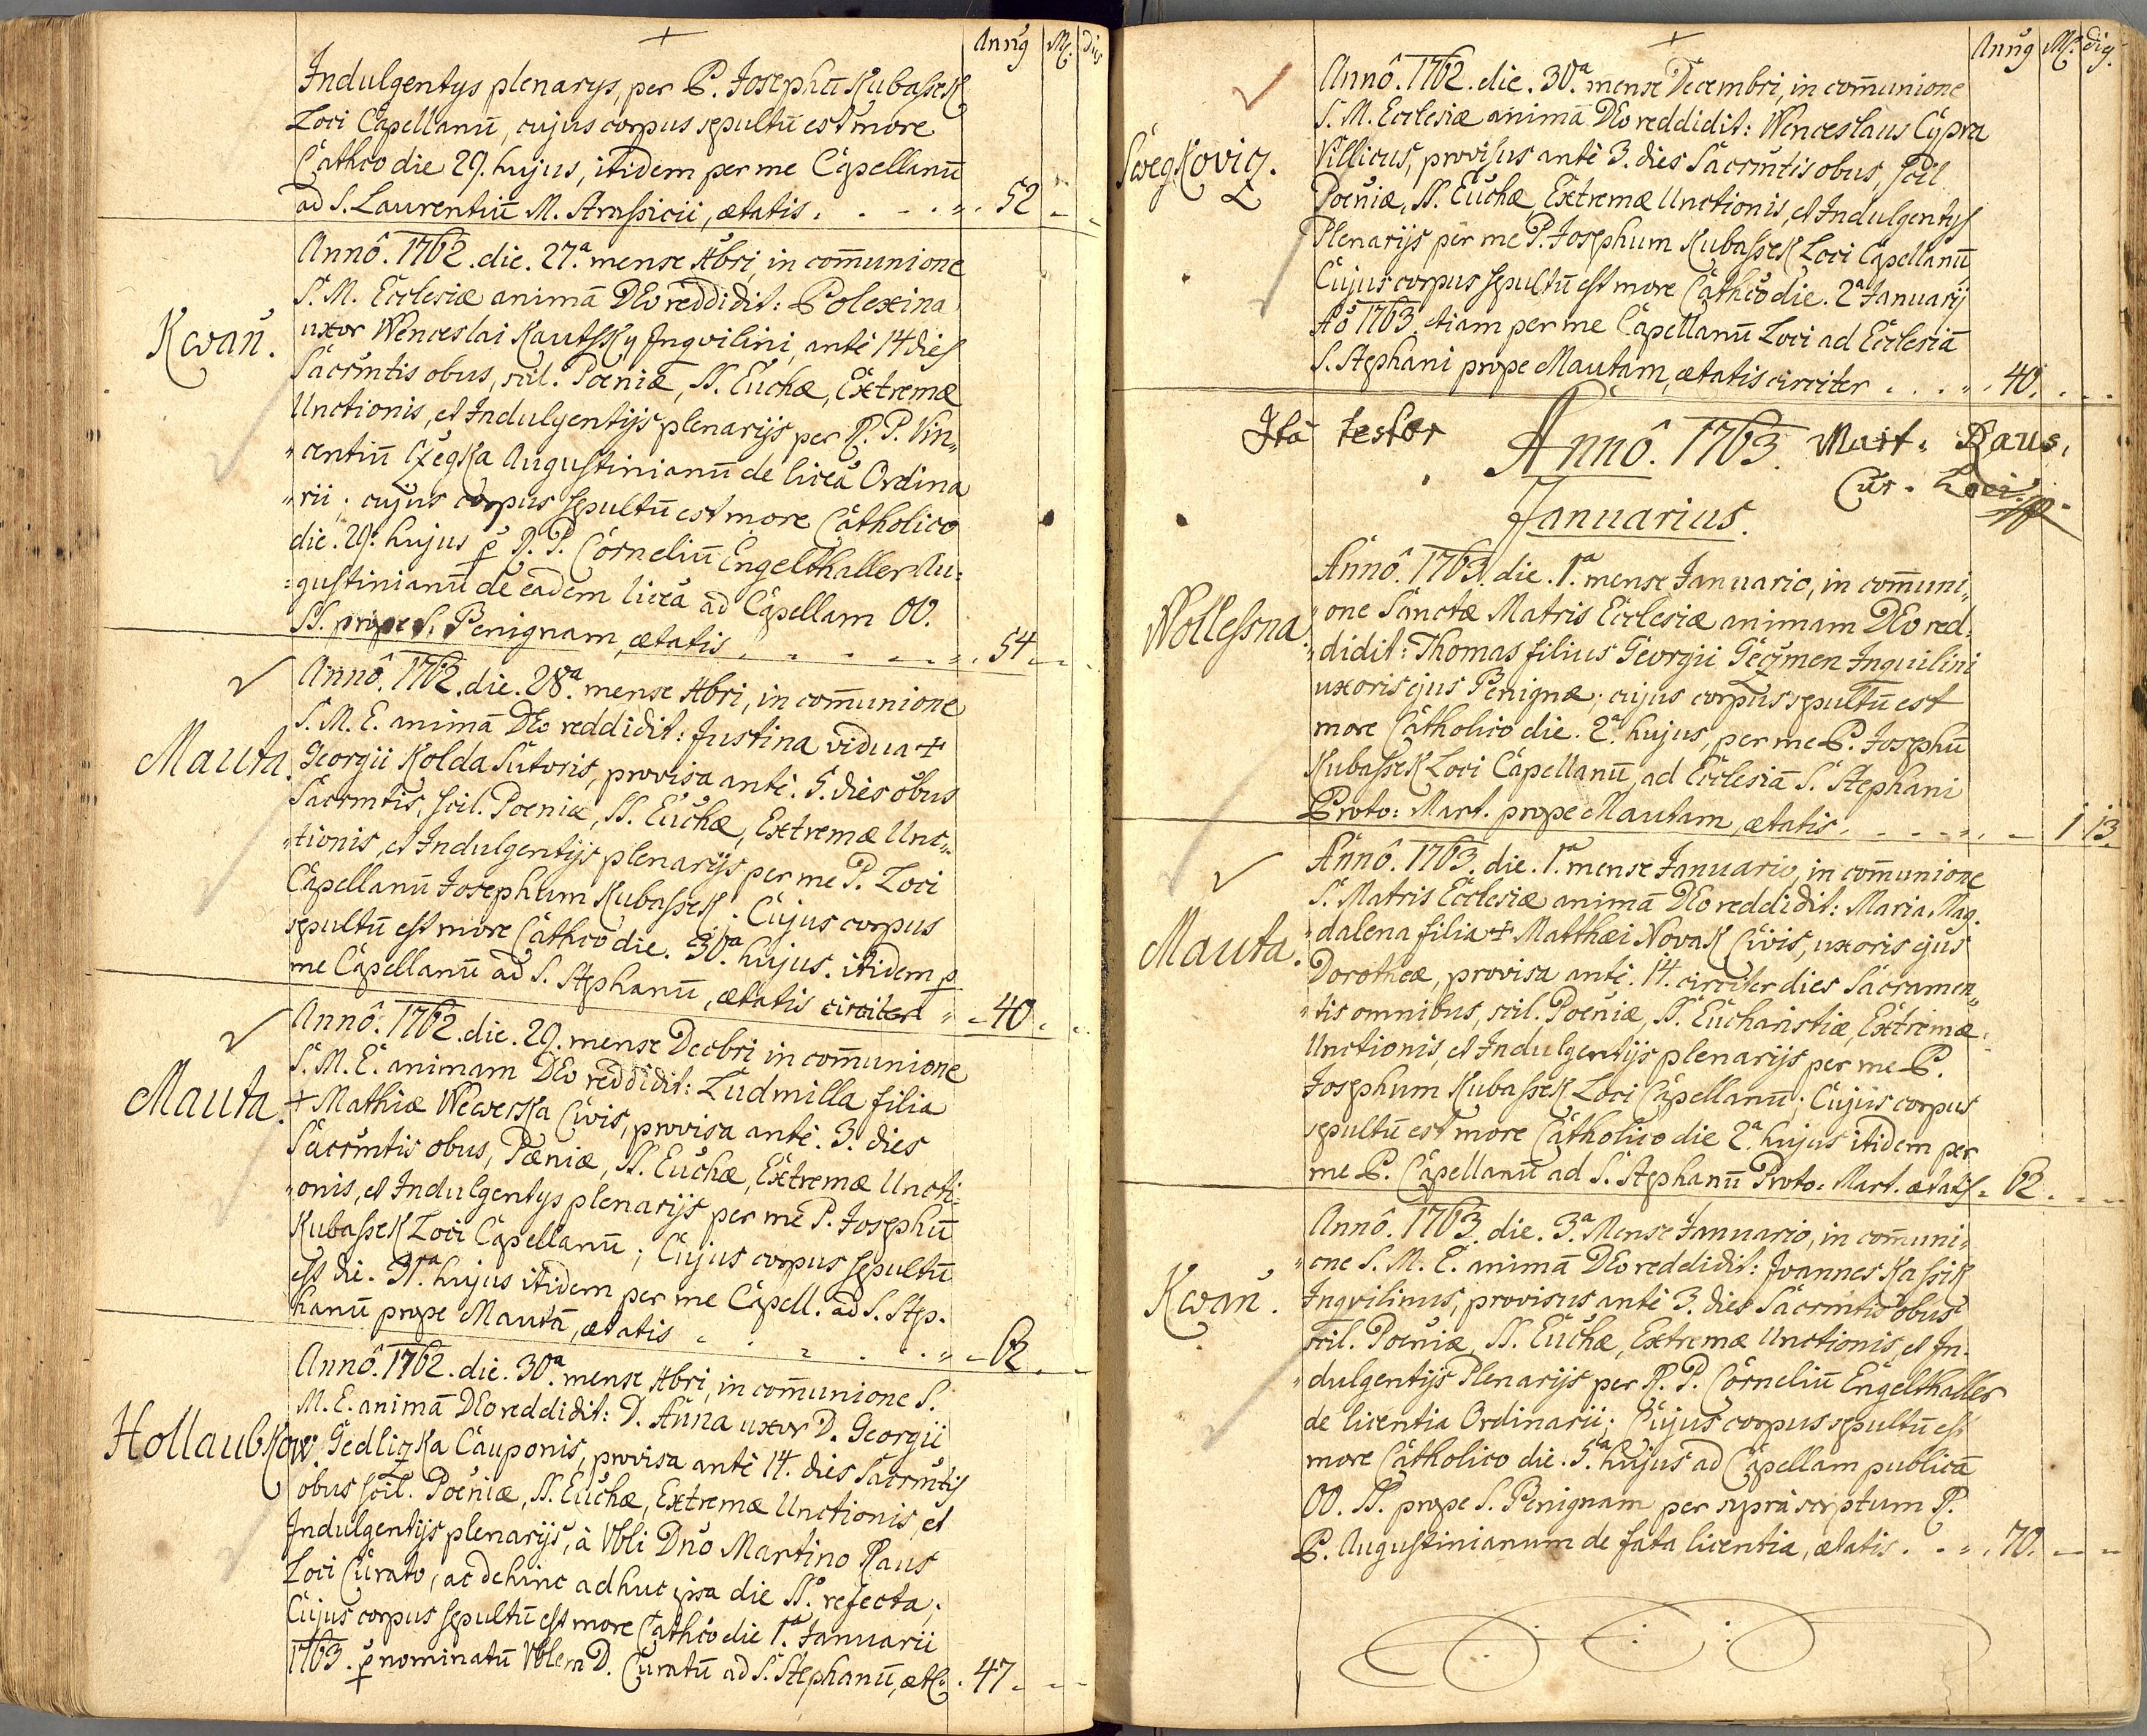 Annꝰ M. dies
Indulgentys plenarys, per P. Josephū Kubassek
Loci Capellanū, cujus corpus sepultū est more
Cathco die 29. hujus, itidem per me Capellanū
ad S. Laurentiū M. Strassicii, ætatis . . . . 52
Annô. 1762. die. 27.ª mense Xbri, in com̄unione
S. M. Ecclesiæ animā DEo reddidit: Polexina
Kwaň. uxor Wenceslai Kautsky Inqvilini, antè 14 dies
Sacrm̄tis obus, scil. Poeniæ, SS. Euchæ, Extremæ
Unctionis, et Indulgentijs plenarijs per R. P. Vin„
„centiū Czegka Augustinianū de liceā Ordina
„rii; cujus corpus sepultū est more Catholico
die. 29. hujus p R. P. Corneliū Engelthaller Au=
=gustinianū de eadem liceā ad Capellam OO.
SS. prope S. Benignam, ætatis . . . . 54
Annô. 1762. die. 28ª. mense Xbri, in com̄unione
S. M. E. animā DEo reddidit: Justina vidua +
Mauta. Georgii Kolda Sutoris, provisa antè. 5. dies obus
Sacrmtis, scil. Poeniæ, SS. Euchæ, Extremæ Unc„
„tionis, et Indulgentijs plenarijs per me P. Loci
Capellanū Josephum Kubassek. Cujus corpus
sepultū est more Cathco die. 30ª. hujus. itidem p
me Capellanū ad S. Stephanū, ætatis circiter 40.
Annô. 1762. die. 29. mense Decbri in com̄unione
S. M. E. animam DEo reddidit: Ludmilla filia
Mauta. + Mathiæ Wewerka Civis, provisa antè. 3. dies
Sacrm̄tis obus, Pæniæ, SS. Euchæ, Extremæ Uncti„
„onis, et Indulgentys plenarijs per me P. Josephū
Kubassek Loci Capellanū; Cujus corpus sepultū
est die. 31ª. hujus itidem per me Capell. ad S. Step.
hanū prope Mautā, ætatis . . . . 62.
Annô. 1762. die. 30ª. mense Xbri, in com̄unione S.
M. E. animā DEo reddidit: D. Anna uxor D. Georgii
Hollaubkow. Gedliczka Cauponis, provisa antè 14. dies Sacrm̄tis
obus scil. Poeniæ, SS. Euchæ, Extremæ Unctionis, et
Indulgentijs plenarijs, à Vbli Dno Martino Raus
Loci Curato, ac dehinc adhuc ipsa die SS. refecta;
Cujus corpus sepultū est more Cathco die 1ª. Januarii
1763. p nominatū Vblem D. Curatū ad S. Stephanū, æt. 47.
Annꝰ M. diꝰ.
Annô. 1762. die. 30ª. mense Decembri, in com̄unione
S. M. Ecclesiæ animā DEo reddidit: Wenceslaus Cypra
Swegkovicz. Villicus, provisus antè 3. dies Sacrm̄tis obus, scil.
Poeniæ, SS. Euchæ, Extremæ Unctionis, et Indulgentys
Plenarijs per me P. Josephum Kubassek Loci Capellanū
Cujus corpus sepultū est more Cathco die. 2ª Januarij
Aō 1763. etiam per me Capellanū Loci ad Ecclesiā
S. Stephani prope Mautam, ætatis circiter . . . 40.
Ità testor Annô. 1763. Mart. Raus.
Cur. Loci.
Januarius.
Annô. 1763. die. 1.ª mense Januario, in com̄uni„
„one Sanctæ Matris Ecclesiæ animam DEo red„
Wollessna „didit: Thomas filius Georgii Geczmen Inquilini
uxoris ejus Benignæ; cujus corpus sepultū est
more Catholico die. 2ª. hujus, per me P. Josephū
Kubassek Loci Capellanū, ad Ecclesiā S. Stephani
Proto: Mart. prope Mautam, ætatis. . . . 1 13.
Annô. 1763. die. 1.ª mense Januario, in com̄unione
S. Matris Ecclesiæ animā DEo reddidit: Maria Mag.
Mauta. „dalena filia + Matthæi Novak Civis, uxoris ejus
Dorotheæ, provisa antè. 14. circiter dies Sacramen„
„tis omnibus, scil. Poeniæ, SS. Eucharistiæ, Extremæ
Unctionis, et Indulgentijs plenarijs per me P.
Josephum Kubassek Loci Capellanū; Cujus corpus
sepultū est more Catholico die 2ª. hujus itidem per
me P. Capellanū ad S. Stephanū Proto: Mart. ætatis. 62.
Annô. 1763. die. 3.ª Mense Januario, in com̄uni„
„one S. M. E. animā DEo reddidit: Joannes Kassik
Kwaň. Inqvilinus, provisus antè 3. dies Sacrmtis obus
scil. Poeniæ, SS. Euchæ, Extremæ Unctionis, et In.
„dulgentijs Plenarijs per R. P. Corneliū Engelthaller
de licentia Ordinarii; Cujus corpus sepultū est
more Catholico die. 5.ta hujus ad Capellam publicā
OO. SS. prope S. Benignam per suprà scriptum R.
P. Augustinianum de fata licentia, ætatis. . . 70.